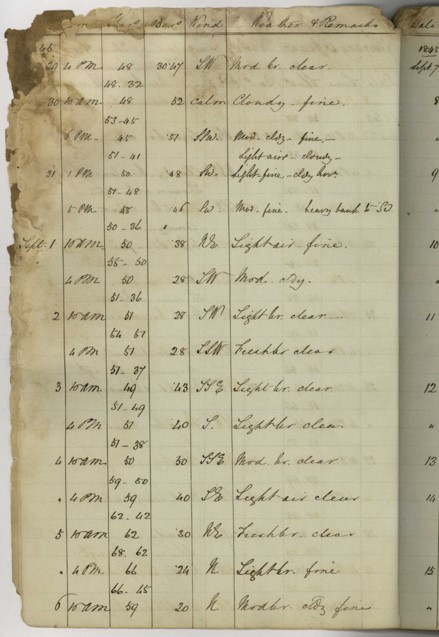 Ther. Bar. Wind Weather & Remarks
46
29 4 PM 48 30.47 SW Mod br. clear.
48. 32
30 10 am 48 52 Calm Cloudy - fine.
53-45
6 PM. 45 .51 SSW. Mod. cldy - fine -
51-41 Light airs - cloudy -
1 PM 50 .48 Light fine - cldy horn.
51-48
5 PM 48 46 Mod. fine. heavy bank to
50-36
Sept. 1 10 am 50 .38 NE Light air - fine.
55-50
4 PM. 50 28 SW Mod. cldy.
51-36
2 10 am 51 28 SW Light br. clear. -
54 51
4 PM 51 28 SSW Fresh br clear
51-37
3 10 am 49 .43 SSE Light br. clear.
51-49
4 PM 51 .40 S. Light br clear
51-38
4 10 am 50 50 SSE Mod. br. clear.
59-50
4 PM 59 40 SE Light air clear
62-42
5 10 am 62 .30 NE Fresh br. clear
68.62
4 PM 66 .24 N Light br. fine
66-45
6 10 am 59 20 N Mod br. cldy fine
Date
184
Sept 7
8
9
10
11
12
13
14
15